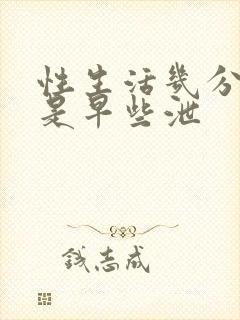 性生活几分
是早些泄
钱志成